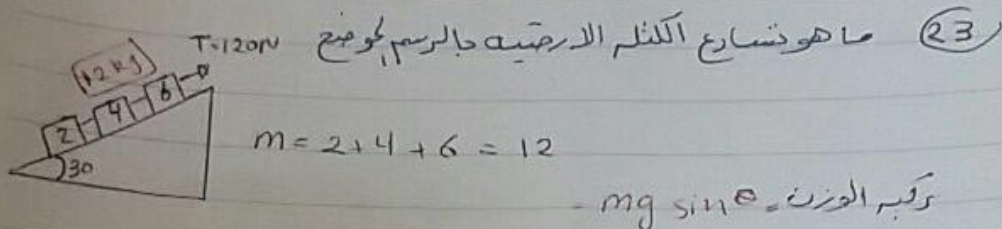 23 ما هو تسارع الكتلة الارضيه بالرسم لموضع
T=120N
12 kg
2 4 6
30
m = 2+4+6 = 12
مركبه الوزن = mg sinθ =